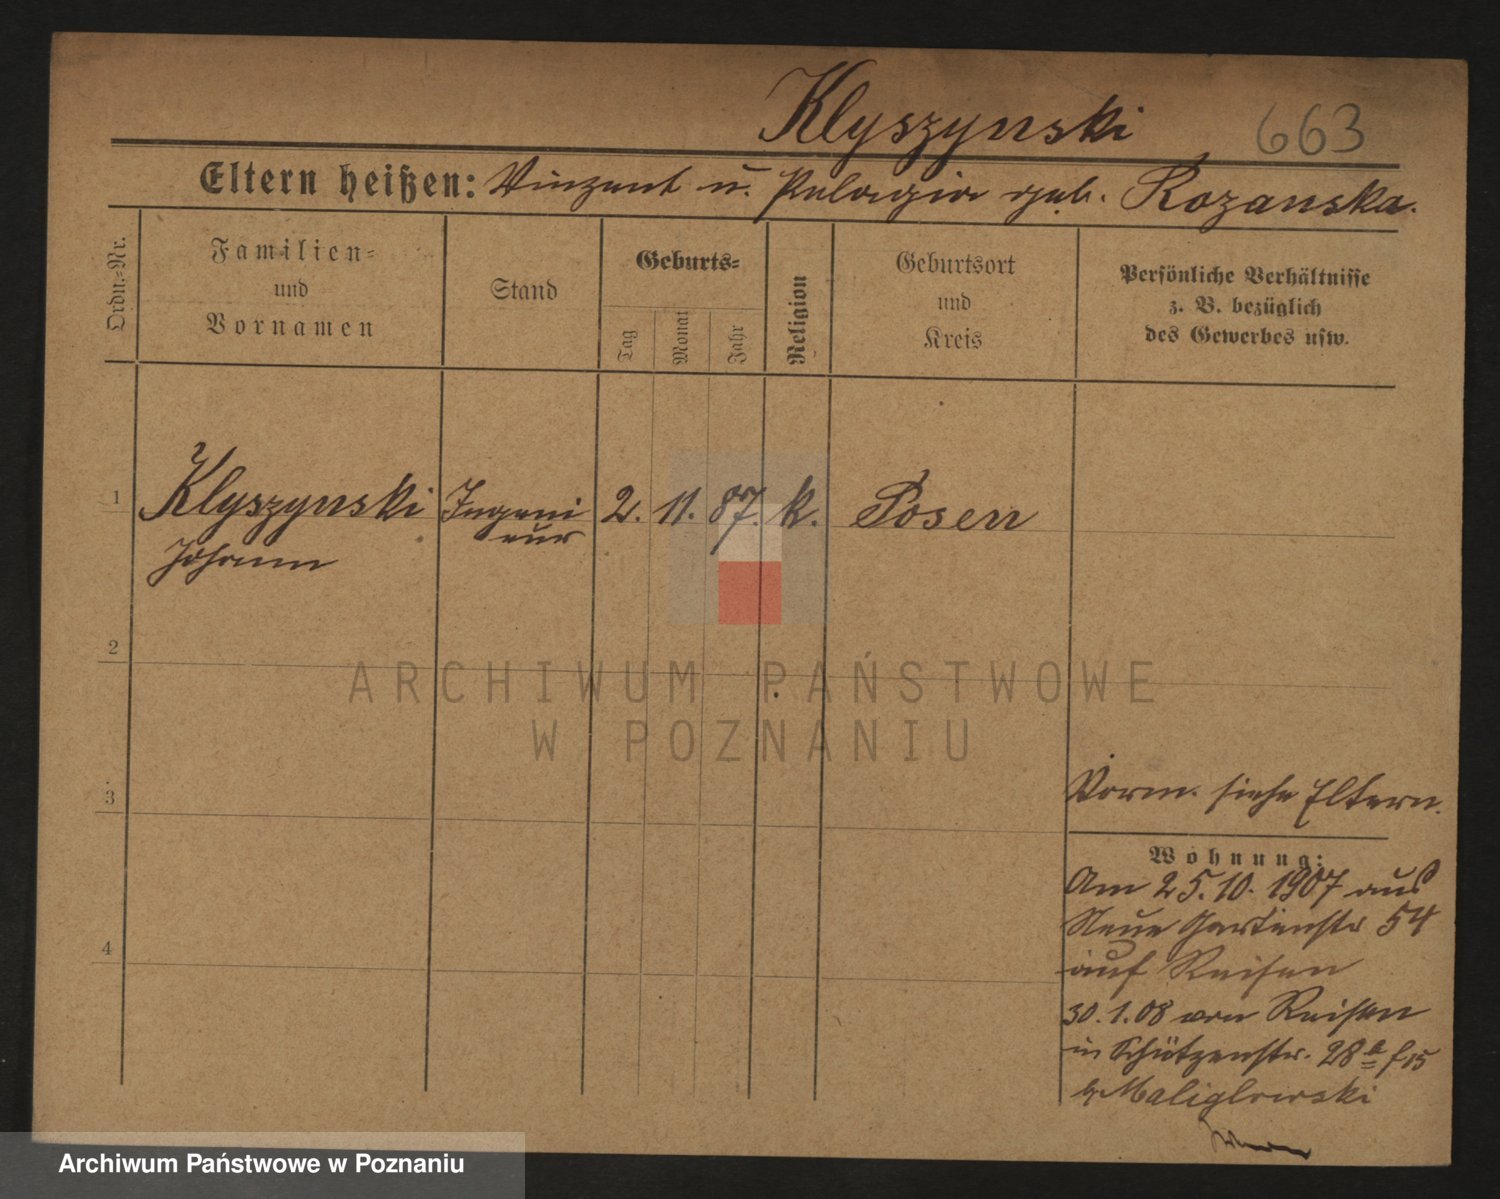 Klyszynski 663
Eltern heißen: Vinzent u. Pelagia geb. Rozanska.
Ordn.-Nr.
Familien-
und
Vornamen
Stand
Geburts-
Tag
Monat
Jahr
Religion
Geburtsort
und
Kreis
Persönliche Verhältnisse
z. B. bezüglich
des Gewerbes usw.
1 Klyszynski Ingeni 2. 11. 87. k. Posen
Johann eur
2
ARCHIWUM PAŃSTWOWE
W POZNANIU
3
Vorm. siehe Eltern.
Wohnung:
Am 25.10.1907 aus
Neue Gartenstr 54
auf Reisen
4
30.1.08 von Reisen
in Schützenstr. 28a
b/ Maliglowski
Archiwum Państwowe w Poznaniu